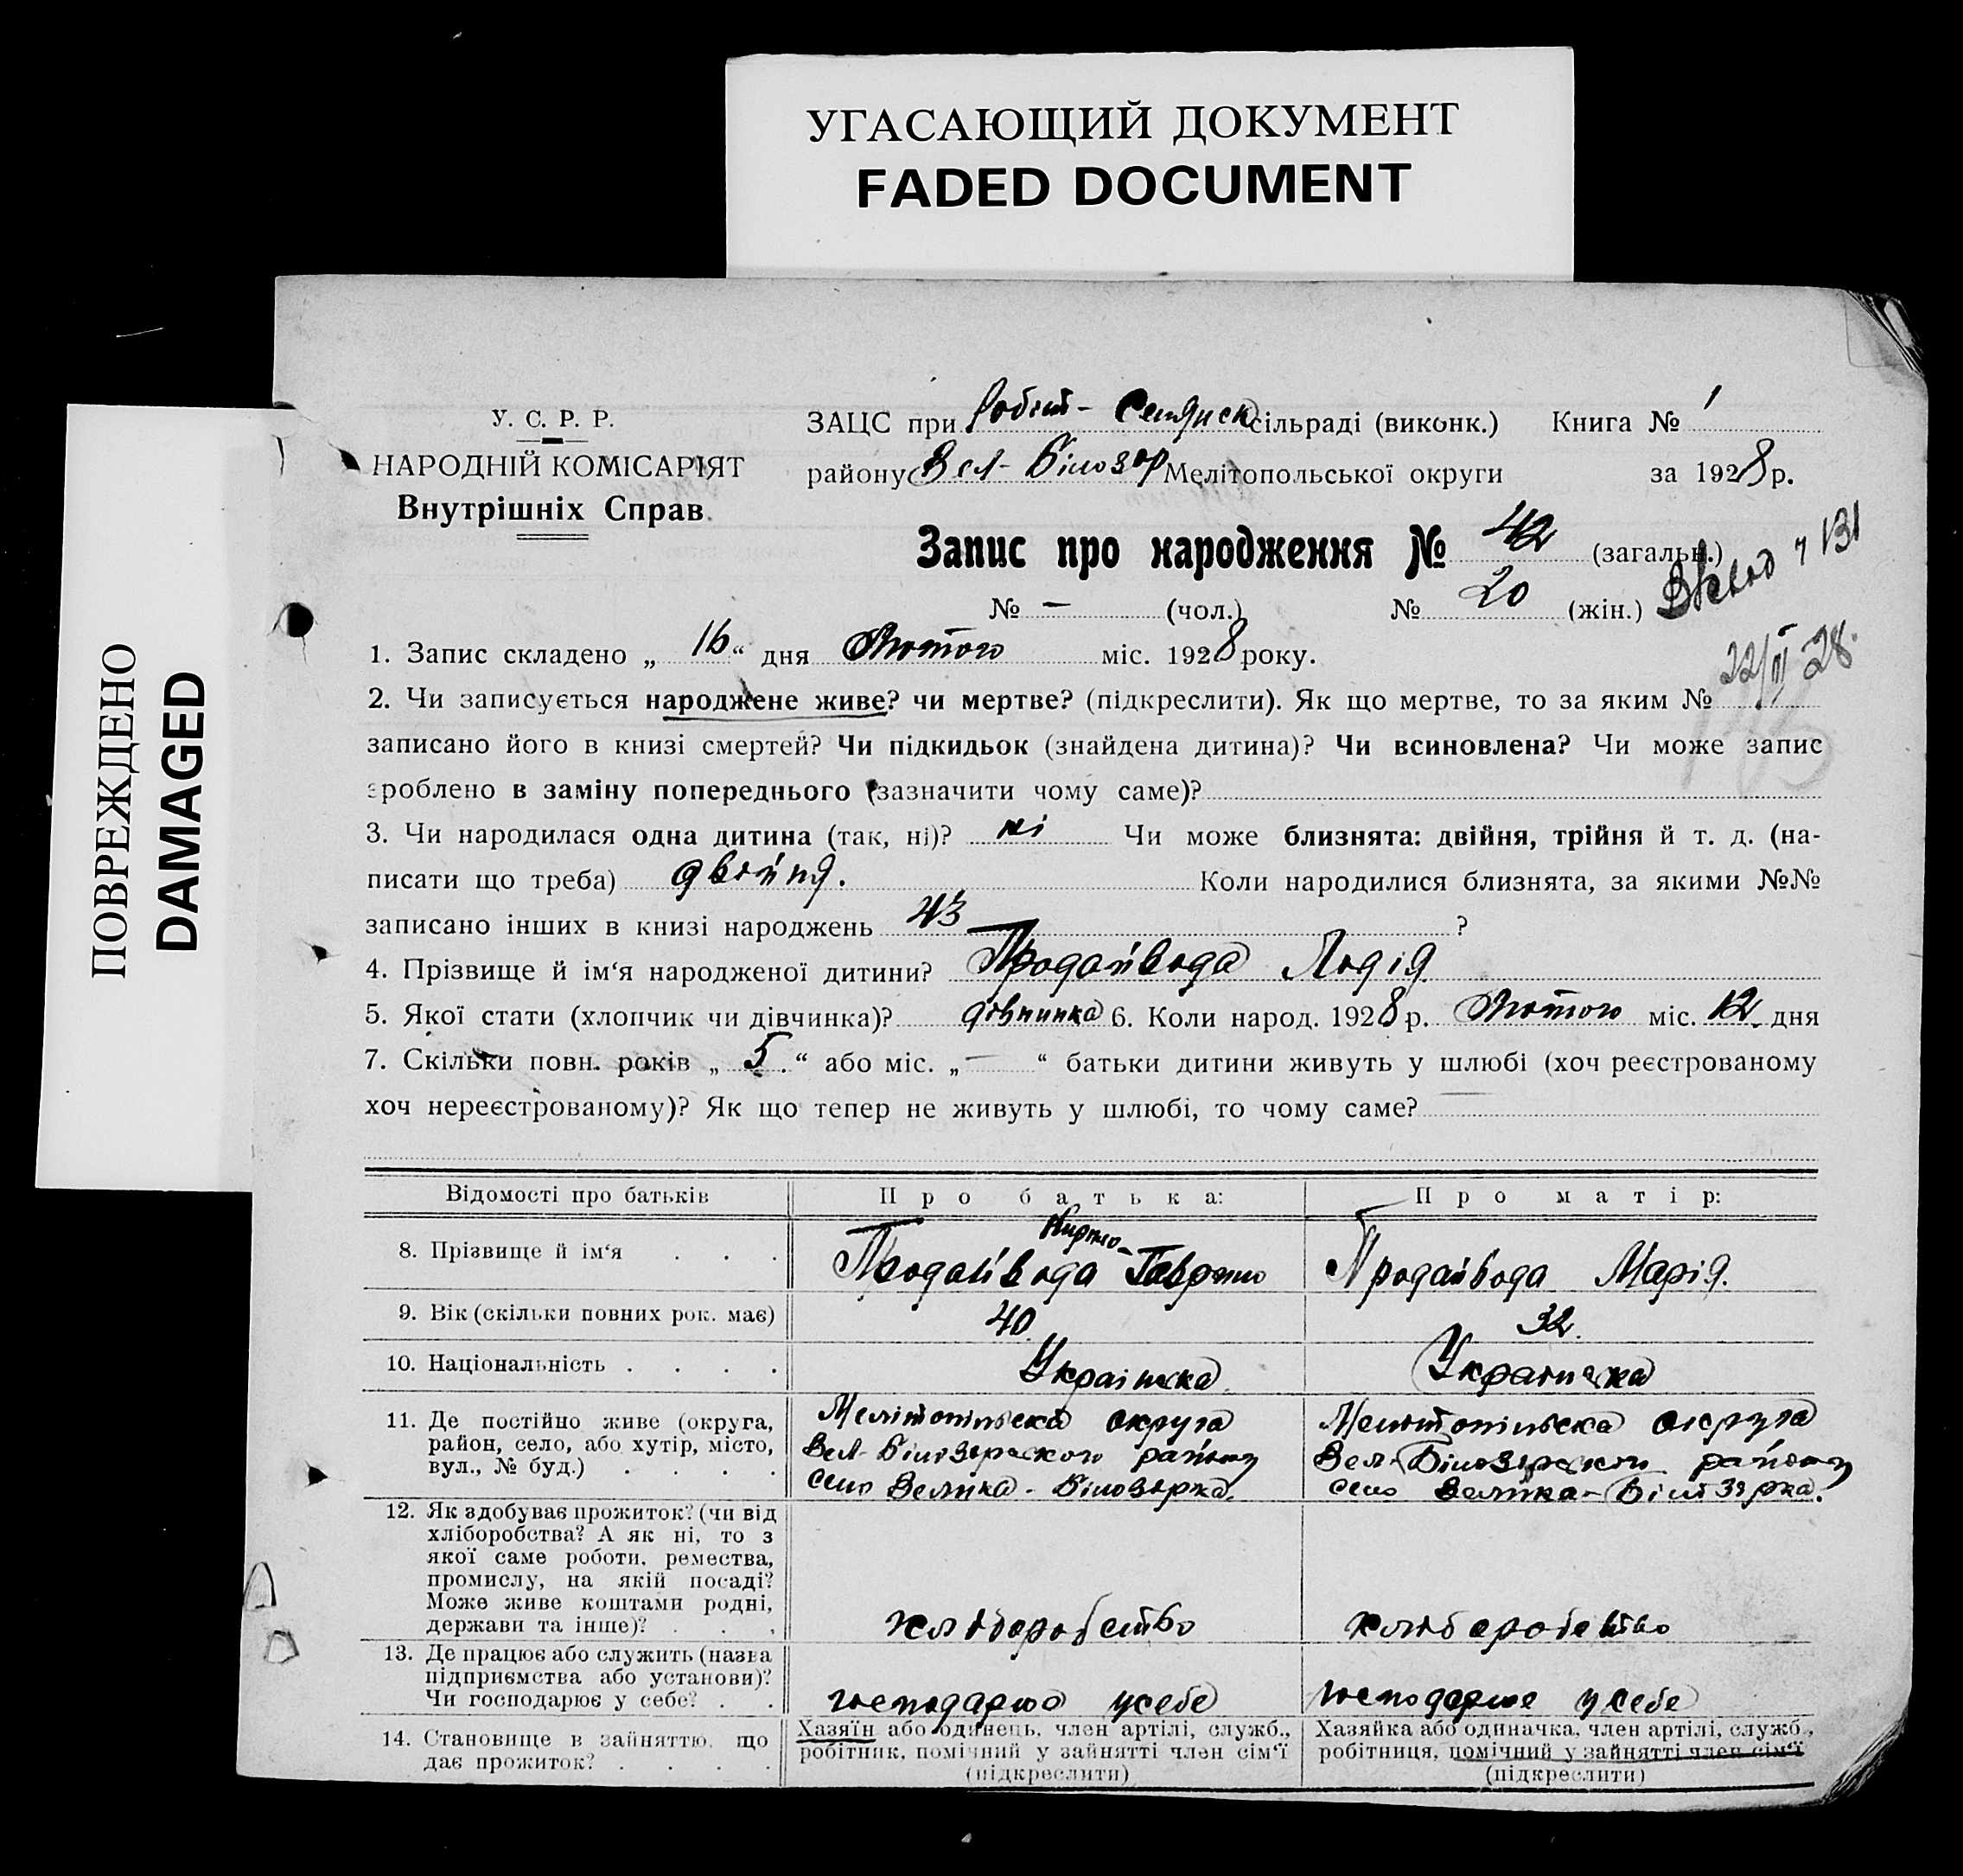 УГАСАЮЩИЙ ДОКУМЕНТ
FADED DOCUMENT
ПОВРЕЖДЕНО
DAMAGED
У. С. Р. Р.
НАРОДНІЙ КОМІСАРІЯТ
Внутрішніх Справ.
ЗАЦС при сільраді (виконк.) Книга № 1
району Вел-Білозер Мелітопольської округи за 1928 р.
Запис про народження № 42 (загальн.)
№ — (чол.) № 20 (жін.)
131
22/II 28.
1. Запис складено „ 16 “ дня Лютого міс. 1928 року.
2. Чи записується народжене живе? чи мертве? (підкреслити). Як що мертве, то за яким №
записано його в книзі смертей? Чи підкидьок (знайдена дитина)? Чи всиновлена? Чи може запис
зроблено в заміну попереднього (зазначити чому саме)?
3. Чи народилася одна дитина (так, ні)? ні Чи може близнята: двійня, трійня й т. д. (на-
писати що треба) двойня. Коли народилися близнята, за якими №№
записано інших в книзі народжень 43 ?
4. Прізвище й ім‘я народженої дитини? Продайвода Лідія
5. Якої стати (хлопчик чи дівчинка)? дівчинка 6. Коли народ. 1928 р. Лютого міс. 12 дня
7. Скільки повн. років „ 5. “ або міс. „ — “ батьки дитини живуть у шлюбі (хоч реєстрованому
хоч нереєстрованому)? Як що тепер не живуть у шлюбі, то чому саме? —
Відомості про батьків Про батька: Про матір:
8. Прізвище й ім‘я . . . Продайвода Гаврило Продайвода Марія.
9. Вік (скільки повних рок. має) 40 32.
10. Національність . . . . Українска Українска
11. Де постійно живе (округа,
район, село, або хутір, місто,
вул., № буд.) . . . .
Мелітопільска округа
Вел-Білозерского району
село Велика-Білозерка.
Мелітопільска округа
Вел-Білозерского району
село Велика-Білозерка.
12. Як здобуває прожиток? (чи від
хліборобства? А як ні, то з
якої саме роботи, ремества,
промислу, на якій посаді?
Може живе коштами родні,
держави та інше)? . . .
хліборобство хліборобство
13. Де працює або служить (назва
підприємства або установи)?
Чи господарює у себе? . .
господарює усебе господарює усебе
14. Становище в зайняттю, що
дає прожиток? . . . .
Хазяїн або одинець, член артілі, служб.,
робітник, помічний у зайнятті член сім‘ї
(підкреслити)
Хазяйка або одиначка, член артілі, служб.,
робітниця, помічний у зайнятті член сім‘ї
(підкреслити)